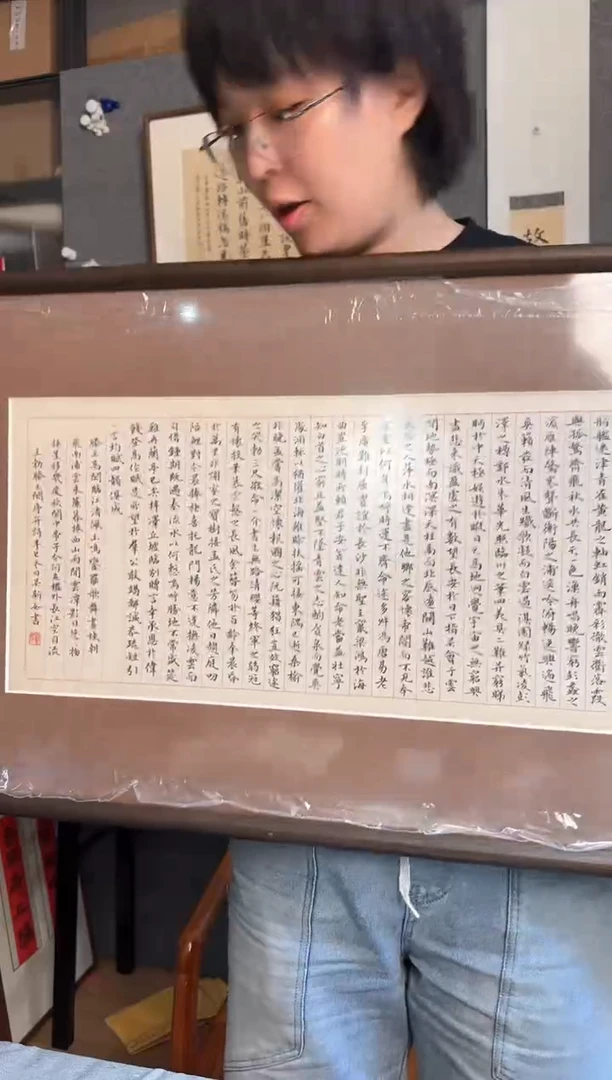 舸艦迷津青雀黃龍之軸虹銷雨霽彩徹雲衢落霞
與孤鶩齊飛秋水共長天一色漁舟唱晚響窮彭蠡之
濱雁陣驚寒聲斷衡陽之浦遙吟俯暢逸興遄飛
爽籟發而清風生纖歌凝而白雲遏睢園綠竹氣凌彭
澤之樽鄴水朱華光照臨川之筆四美具二難并窮睇
眄於中天極娛遊於暇日天高地迥覺宇宙之無窮興
盡悲來識盈虛之有數望長安於日下指吳會于雲
間地勢極而南溟深天柱高而北辰遠關山難越誰悲
之人萍水相逢盡是他鄉之客懷帝閽而不見奉
以何年嗚呼時運不齊命途多舛馮唐易老
李廣難封屈賈誼於長沙非無聖主竄梁鴻於海
曲豈乏明時所賴君子安貧達人知命老當益壯寧
知白首之心窮且益堅不墜青雲之志酌貪泉而覺爽
處涸轍以猶懽北海雖賒扶搖可接東隅已逝桑榆
非晚孟嘗高潔空懷報國之心阮籍猖狂豈效窮途
之哭勃三尺微命一介書生無路請纓等終軍之弱冠
有懷投筆慕宗愨之長風舍簪笏於百齡奉晨昏
於萬里非謝家之寶樹接孟氏之芳鄰他日趨庭叨
陪鯉對今晨捧袂喜托龍門楊意不逢撫凌雲而
自惜鍾期既遇奏流水以何慚嗚呼勝地不常盛筵
難再蘭亭已矣梓澤丘墟臨別贈言幸承恩於偉
餞登高作賦是所望於群公敢竭鄙誠恭疏短引
一言均賦四韻俱成
滕王高閣臨江渚佩玉鳴鸞罷歌舞畫棟朝
飛南浦雲朱簾暮捲西山雨閒雲潭影日悠悠物
換星移幾度秋閣中帝子今何在檻外長江空自流
王勃滕王閣序